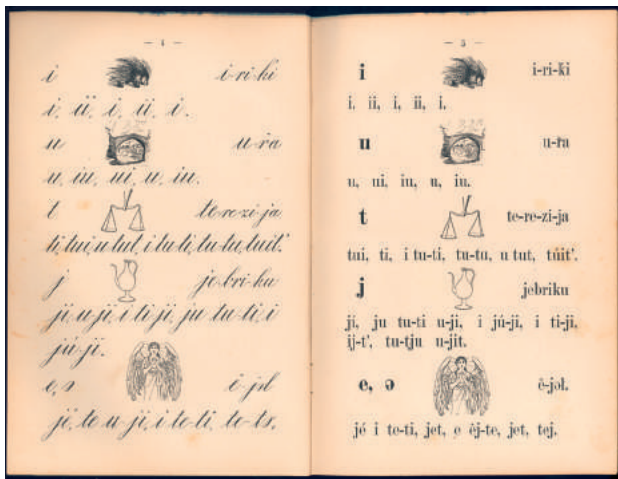 — 4 —
i i-ri-ḱi
i, ii, i, ii, i.
u u-řa
u, iu, ui, u, iu.
t te-re-zi-ja
ti, tui, u tut, i tu-ti, tu-tu, tuit'.
j je-bri-ku
ji, u-ji, i ti-ji, ju tu-ti, i
jú-ji.
e, ə
— 5 —
i i-ri-ḱi
i, ii, i, ii, i.
u u-řa
u, ui, iu, u, iu.
t te-re-zi-ja
tui, ti, i tu-ti, tu-tu, u tut, túit'.
j jebriku
ji, ju tu-ti u-ji, i jú-ji, i ti-ji,
ij-t', tu-tju u-jit.
e, ə ë-jəl.
jé i te-ti, jet, e ëj-te, jet, tej.